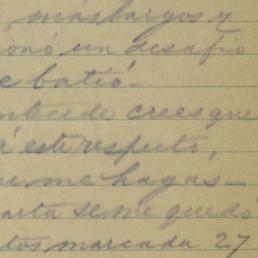 más largos y
onó un desafio
e batió.
ntecede crees que
á este respecto,
ue me hagas—
arta se me quedó
tos marcada 27